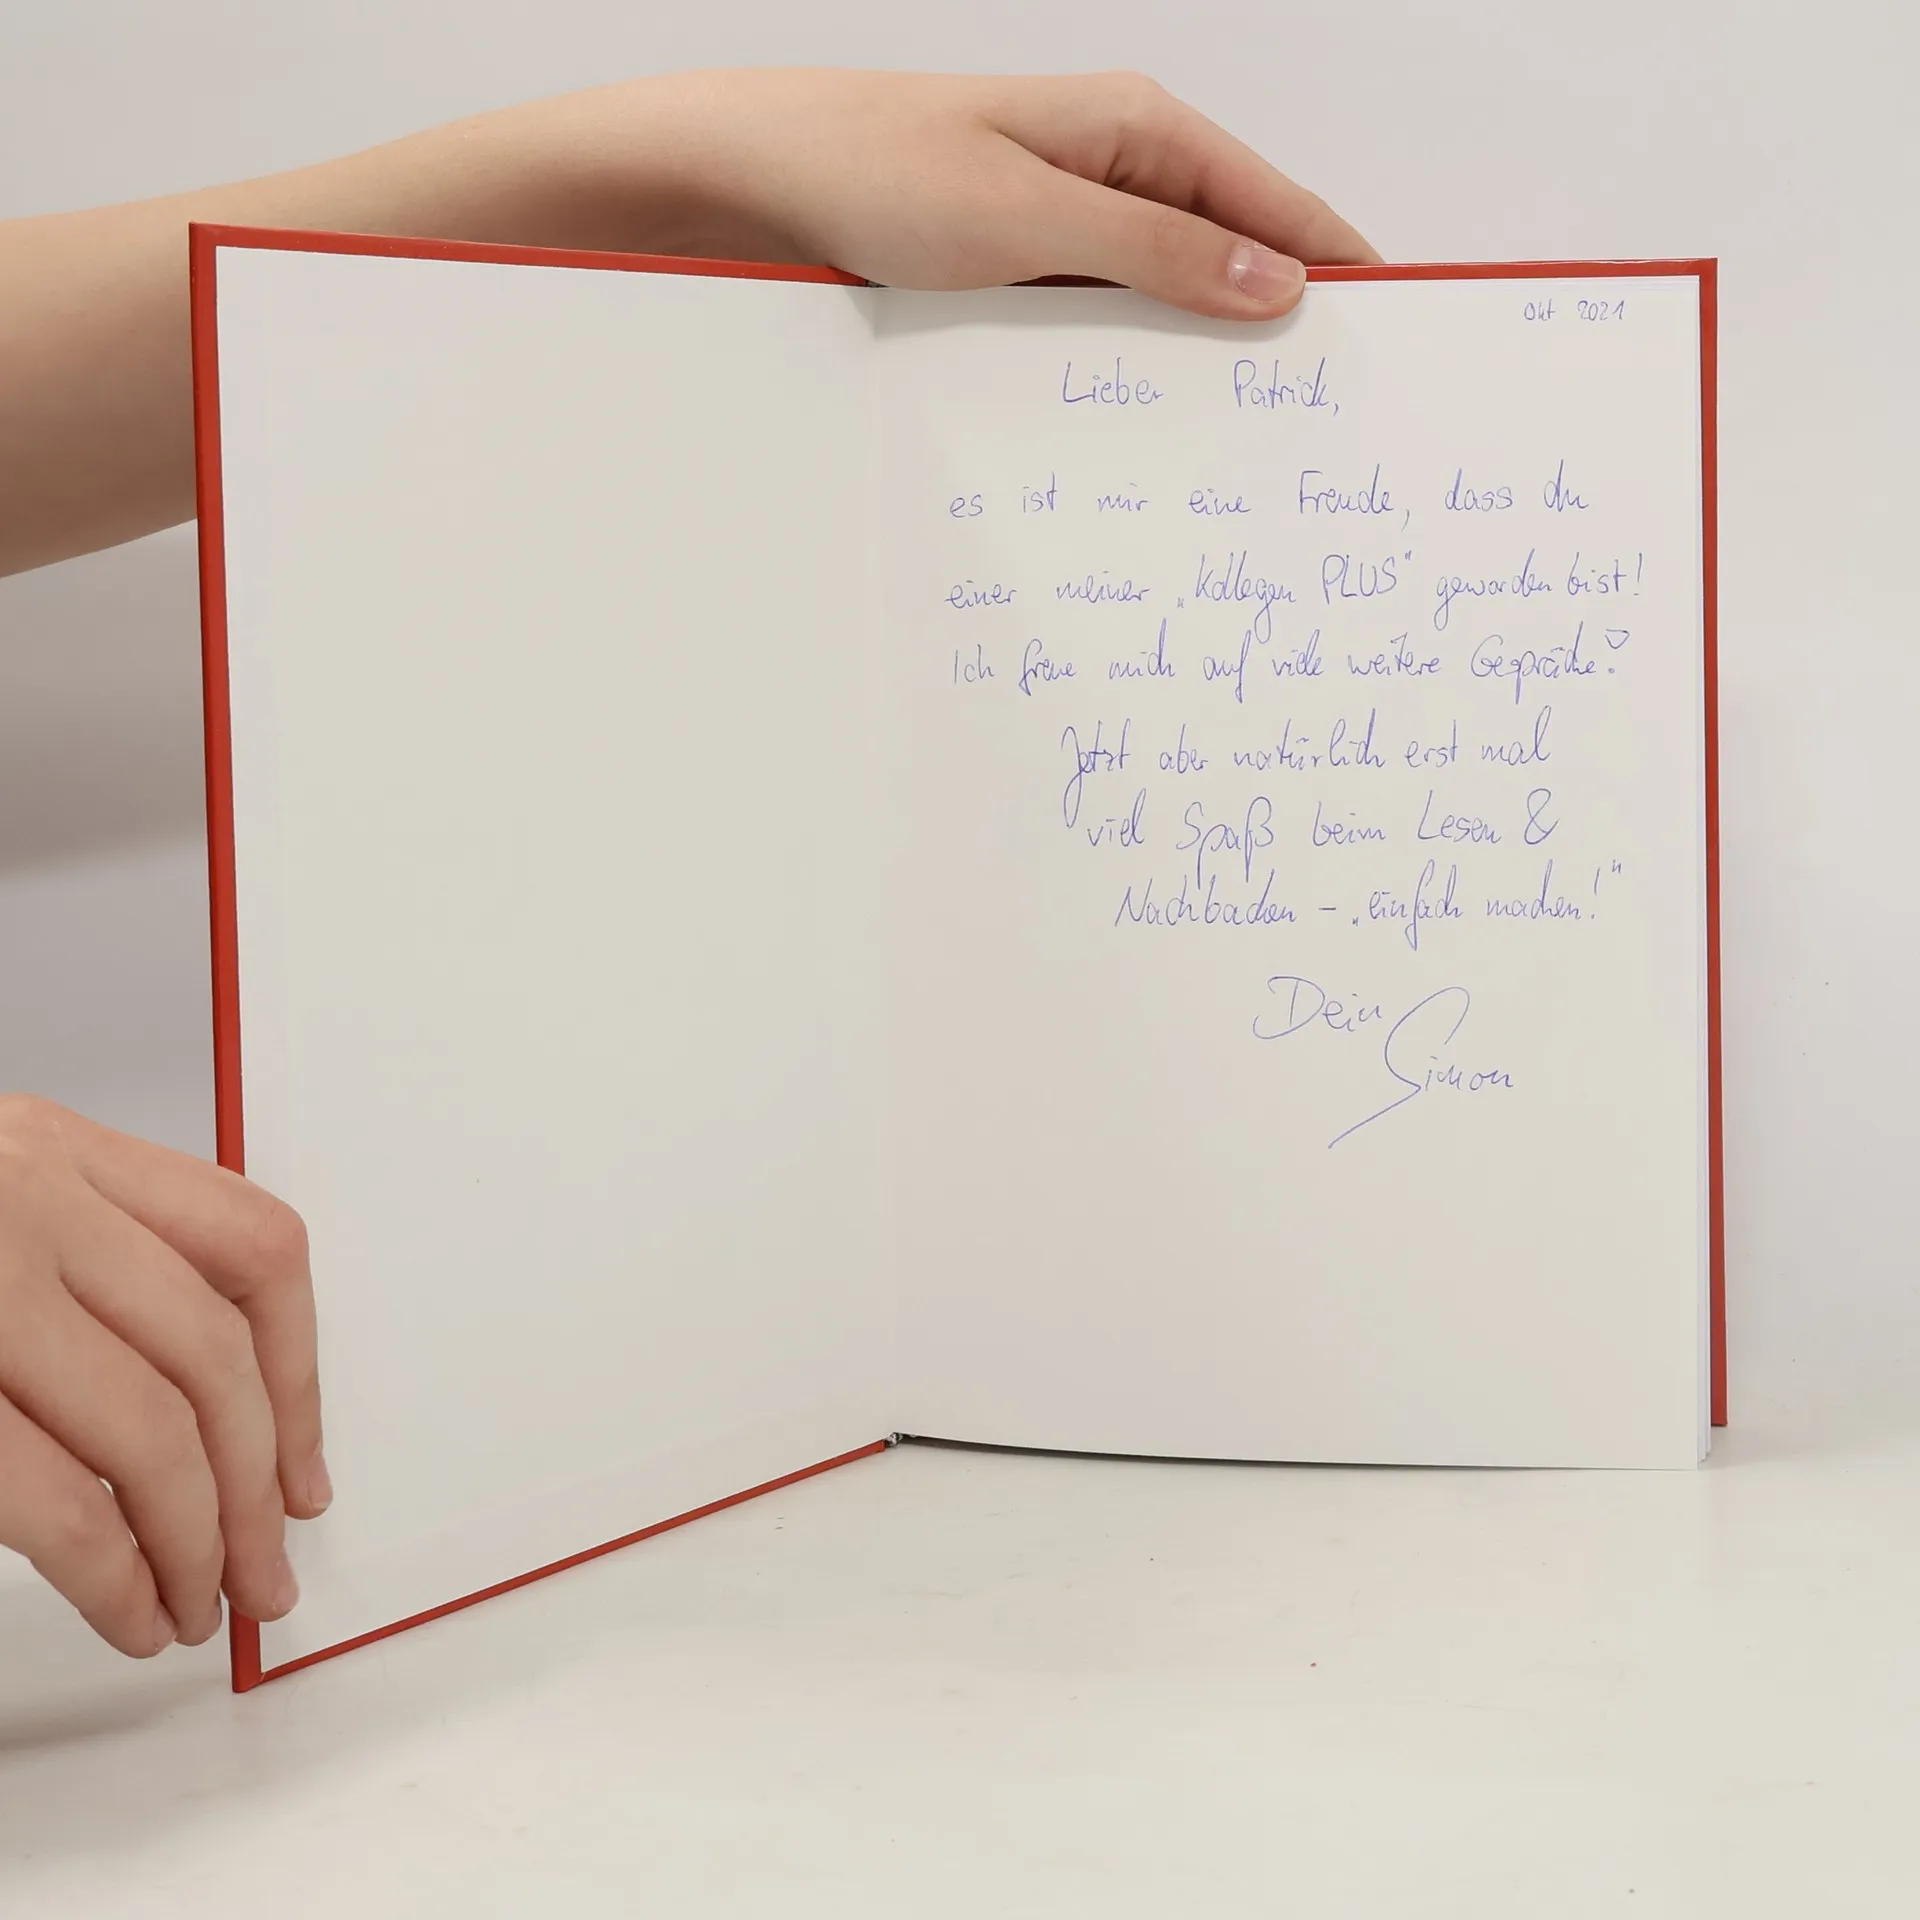 Okt 2021
Lieber Patrick,
es ist mir eine Freude, dass du
einer meiner „Kollegen PLUS" geworden bist!
Ich freue mich auf viele weitere Gespräche!
Jetzt aber natürlich erst mal
viel Spaß beim Lesen &
Nachbacken – „einfach machen!"
Dein
Simon